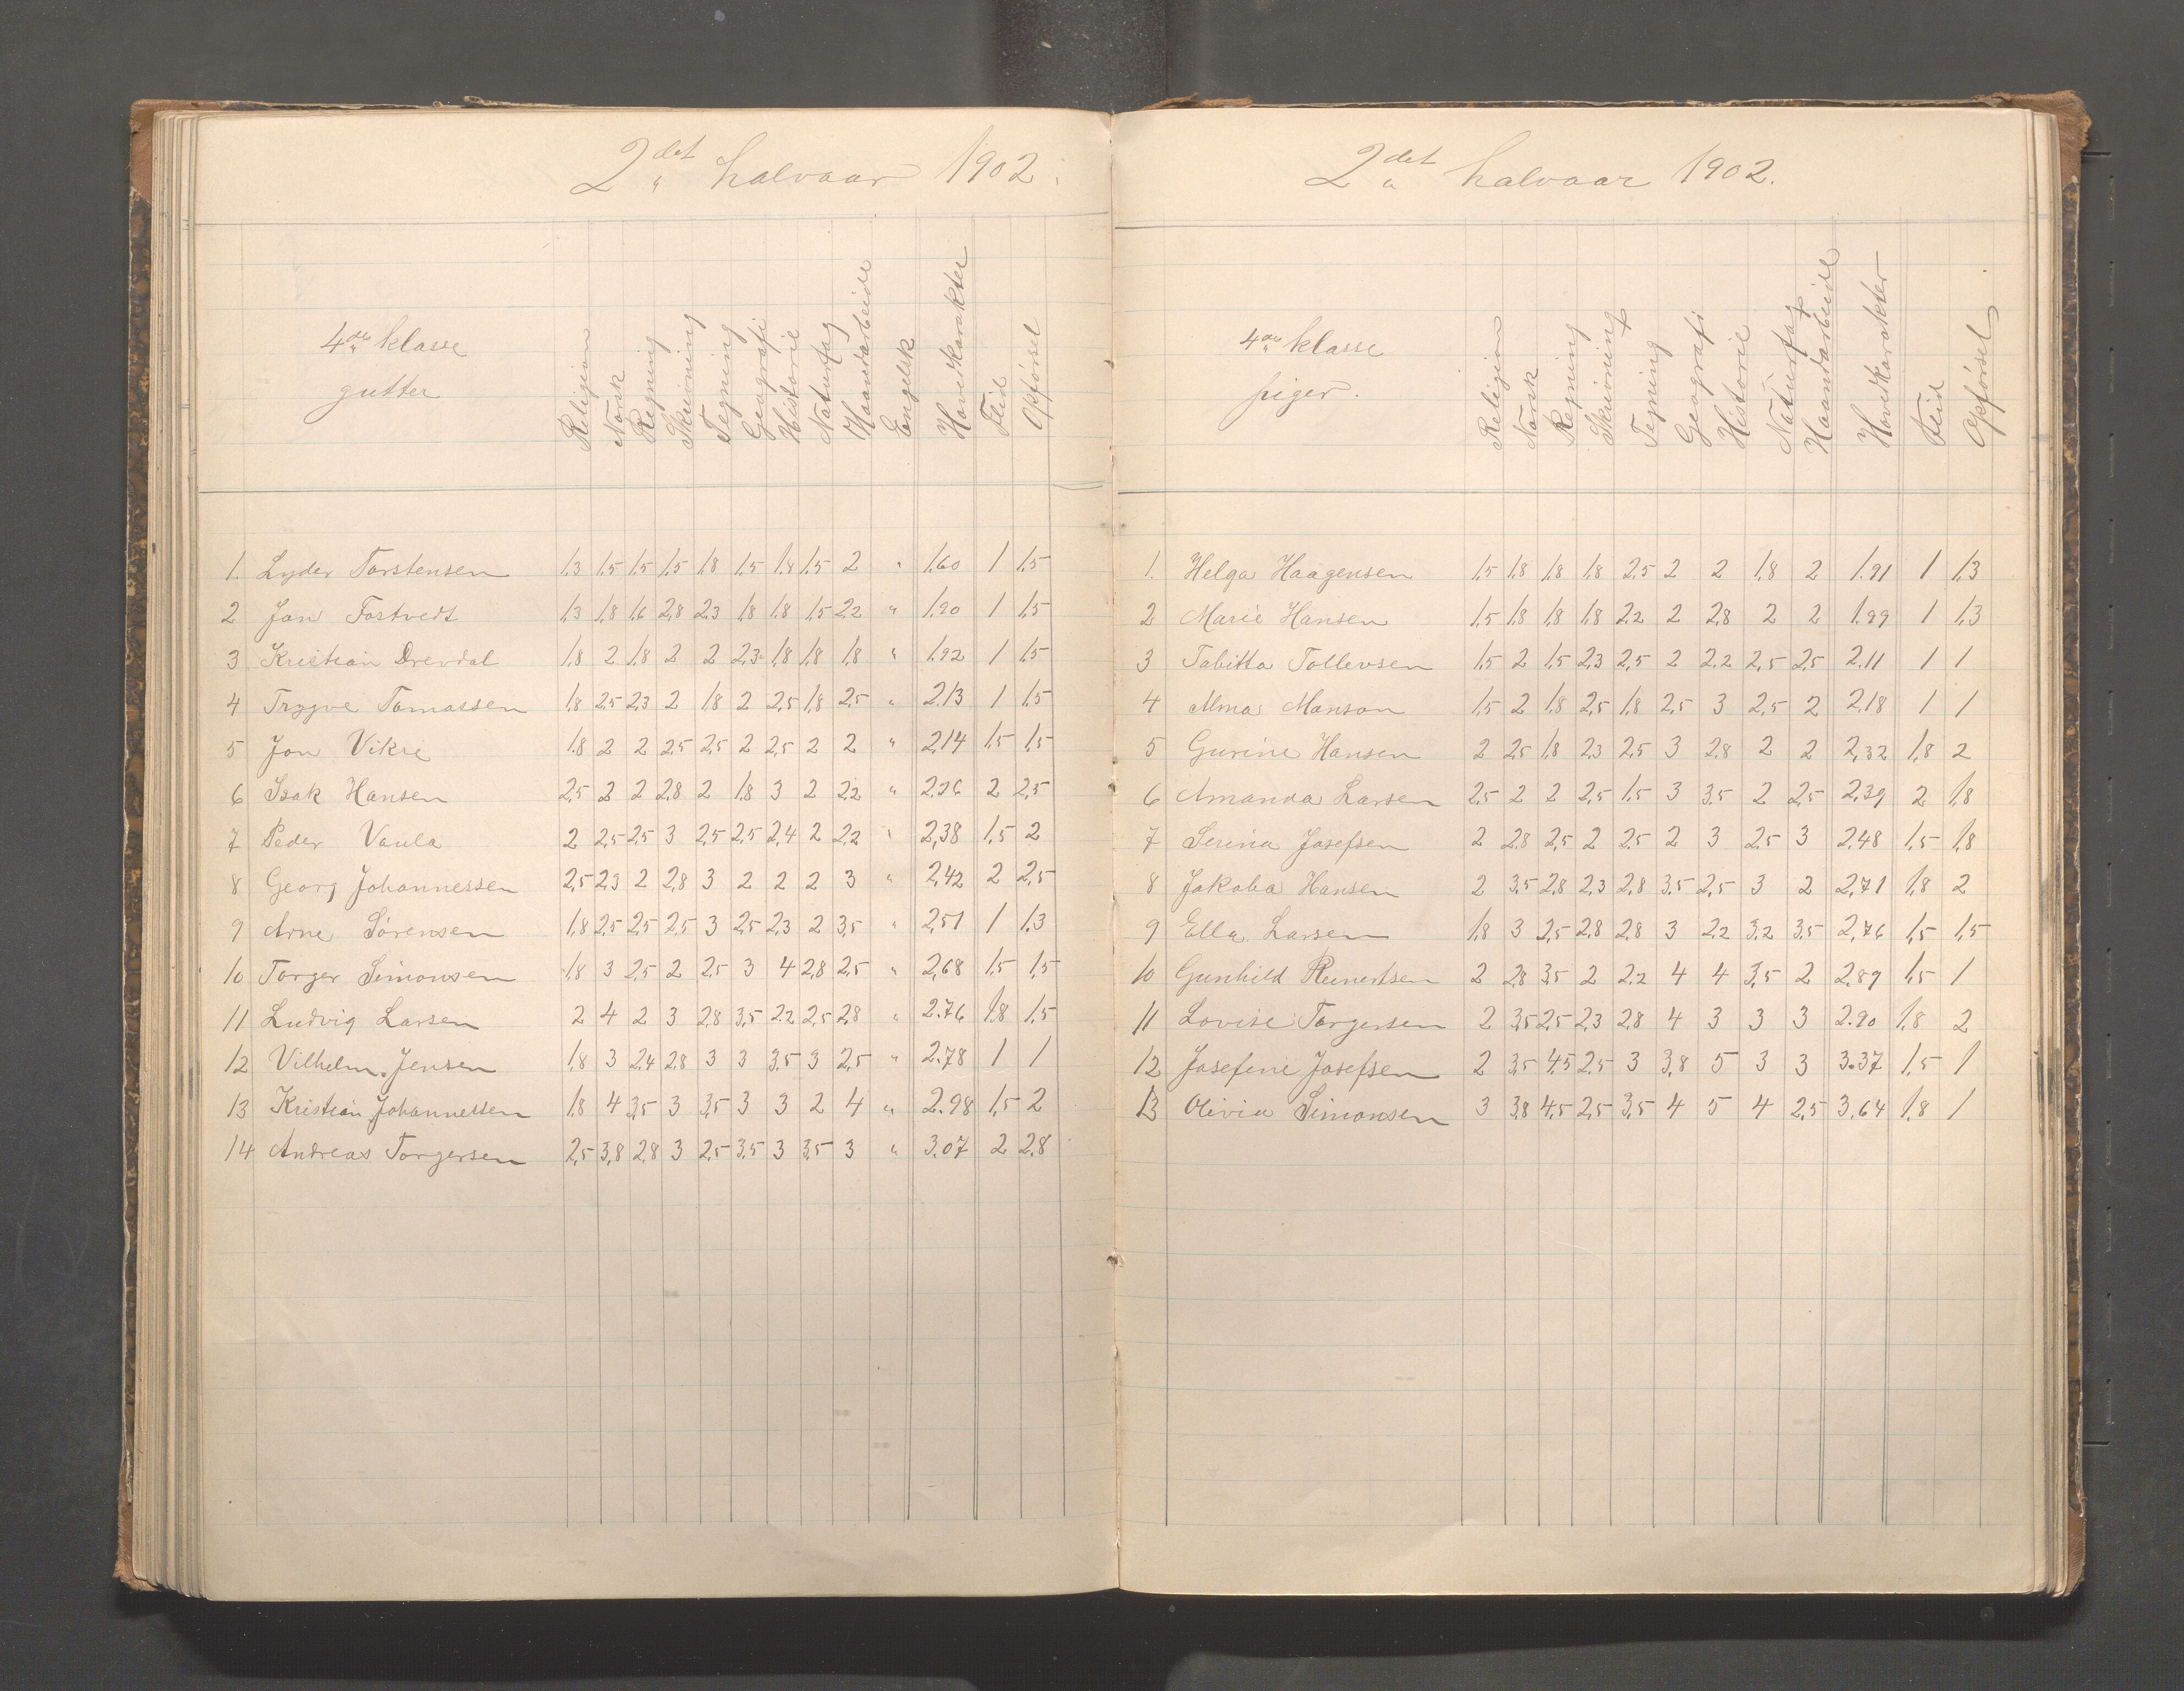 2det halvaar 1902.
4de klasse
gutter
Religion Norsk Regning Skrivning Tegning Geografi Historie Naturfag Haandarbeide Engelsk Hovedkarakter Flid Opførsel
1. Lyder Torstensen 1,3 1,5 1,5 1,5 1,8 1,5 1,8 1,5 2 " 1.60 1 1,5
2 Jon Tostvedt 1,3 1,8 1,6 2,8 2,3 1,8 1,8 1,5 2,2 " 1.90 1 1,5
3 Kristian Drevdal 1,8 2 1,8 2 2 2,3 1,8 1,8 1,8 " 1.92 1 1,5
4 Trygve Tomassen 1,8 2,5 2,3 2 1,8 2 2,5 1,8 2,5 " 2.13 1 1,5
5 Jon Vikre 1,8 2 2 2,5 2,5 2 2,5 2 2 " 2,14 1,5 1,5
6 Isak Hansen 2,5 2 2 2,8 2 1,8 3 2 2,2 " 2.26 2 2,5
7 Peder Vaula 2 2,5 2,5 3 2,5 2,5 2,4 2 2,2 " 2,38 1,5 2
8 Georg Johannessen 2,5 2,3 2 2,8 3 2 2 2 3 " 2,42 2 2,5
9 Arne Sørensen 1,8 2,5 2,5 2,5 3 2,5 2,3 2 3,5 " 2,51 1 1,3
10 Torger Simonsen 1,8 3 2,5 2 2,5 3 4 2,8 2,5 " 2,68 1,5 1,5
11 Ludvig Larsen 2 4 2 3 2,8 3,5 2.2 2,5 2,8 " 2.76 1,8 1,5
12 Vilhelm Jensen 1,8 3 2,4 2,8 3 3 3,5 3 2,5 " 2.78 1 1
13 Kristian Johannessen 1,8 4 3,5 3 3,5 3 3 2 4 " 2.98 1,5 2
14 Andreas Torgersen 2,5 3,8 2,8 3 2,5 3,5 3 3,5 3 " 3.07 2 2,8
2det halvaar 1902.
4de klasse
piger.
Religion Norsk Regning Skrivning Tegning Geografi Historie Naturfag Haandarbeide Hovedkarakter Flid Opførsel
1. Helga Haagensen 1,5 1,8 1,8 1,8 2,5 2 2 1,8 2 1.91 1 1,3
2 Marie Hansen 1,5 1,8 1,8 1,8 2,2 2 2,8 2 2 1.99 1 1,3
3 Tabitta Tollevsen 1,5 2 1,5 2,3 2,5 2 2,2 2,5 2,5 2.11 1 1
4 Alma Monson 1,5 2 1,8 2,5 1,8 2,5 3 2,5 2 2.18 1 1
5 Gurine Hansen 2 2,5 1,8 2,3 2,5 3 2,8 2 2 2,32 1,8 2
6 Amanda Larsen 2,5 2 2 2,5 1,5 3 3,5 2 2,5 2,39 2 1,8
7 Serina Josefsen 2 2,8 2,5 2 2,5 2 3 2,5 3 2,48 1,5 1,8
8 Jakoba Hansen 2 3,5 2,8 2,3 2,8 3,5 2,5 3 2 2,71 1,8 2
9 Ella Larsen 1,8 3 2,5 2,8 2,8 3 2,2 3,2 3,5 2,76 1,5 1,5
10 Gunhild Reinertsen 2 2,8 3,5 2 2,2 4 4 3,5 2 2,89 1,5 1
11 Lovise Torgersen 2 3,5 2,5 2,3 2,8 4 3 3 3 2.90 1,8 2
12 Josefine Josefsen 2 3,5 4,5 2,5 3 3,8 5 3 3 3.37 1,5 1
13 Olivia Simonsen 3 3,8 4,5 2,5 3,5 4 5 4 2,5 3,64 1,8 1